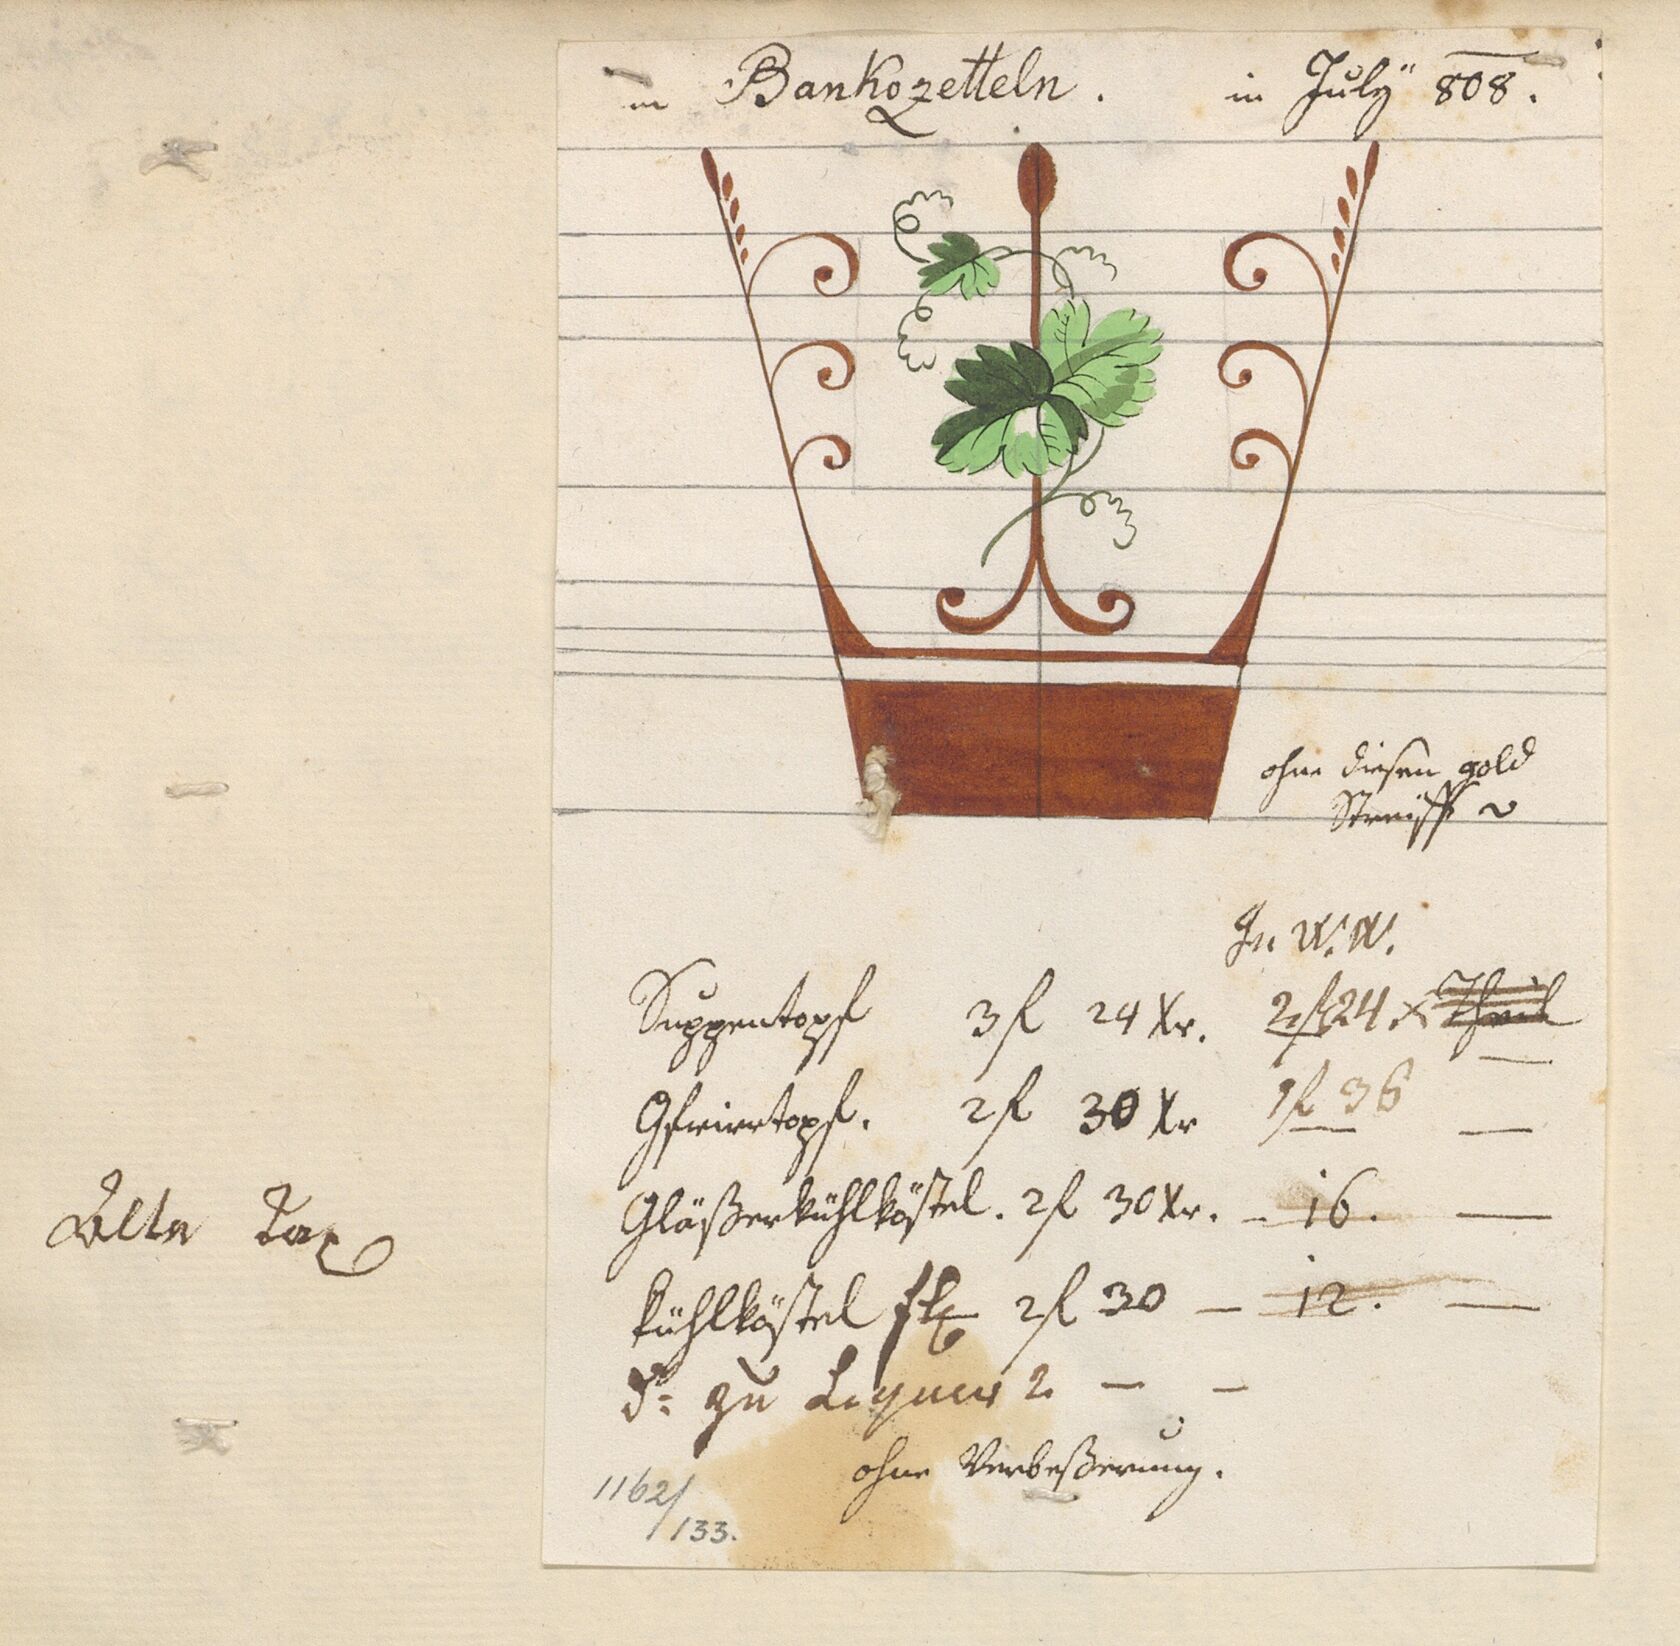 in Bankozetteln. in July 808.
ohne diesen gold
Streiff
In W. W.
Suppentopf 3 f 24 Xr. 2 f 24 x
Gfriertopf. 2 f 30 Xr 1 f 36 —
Gläßerkühlköstel. 2 f 30 Xr. - 16. —
Alte Tax
Kühlköstel 2 f 30 — 12. —
do: zu Liqueur 2 — —
ohne Verbeßerung.
1162/
133.